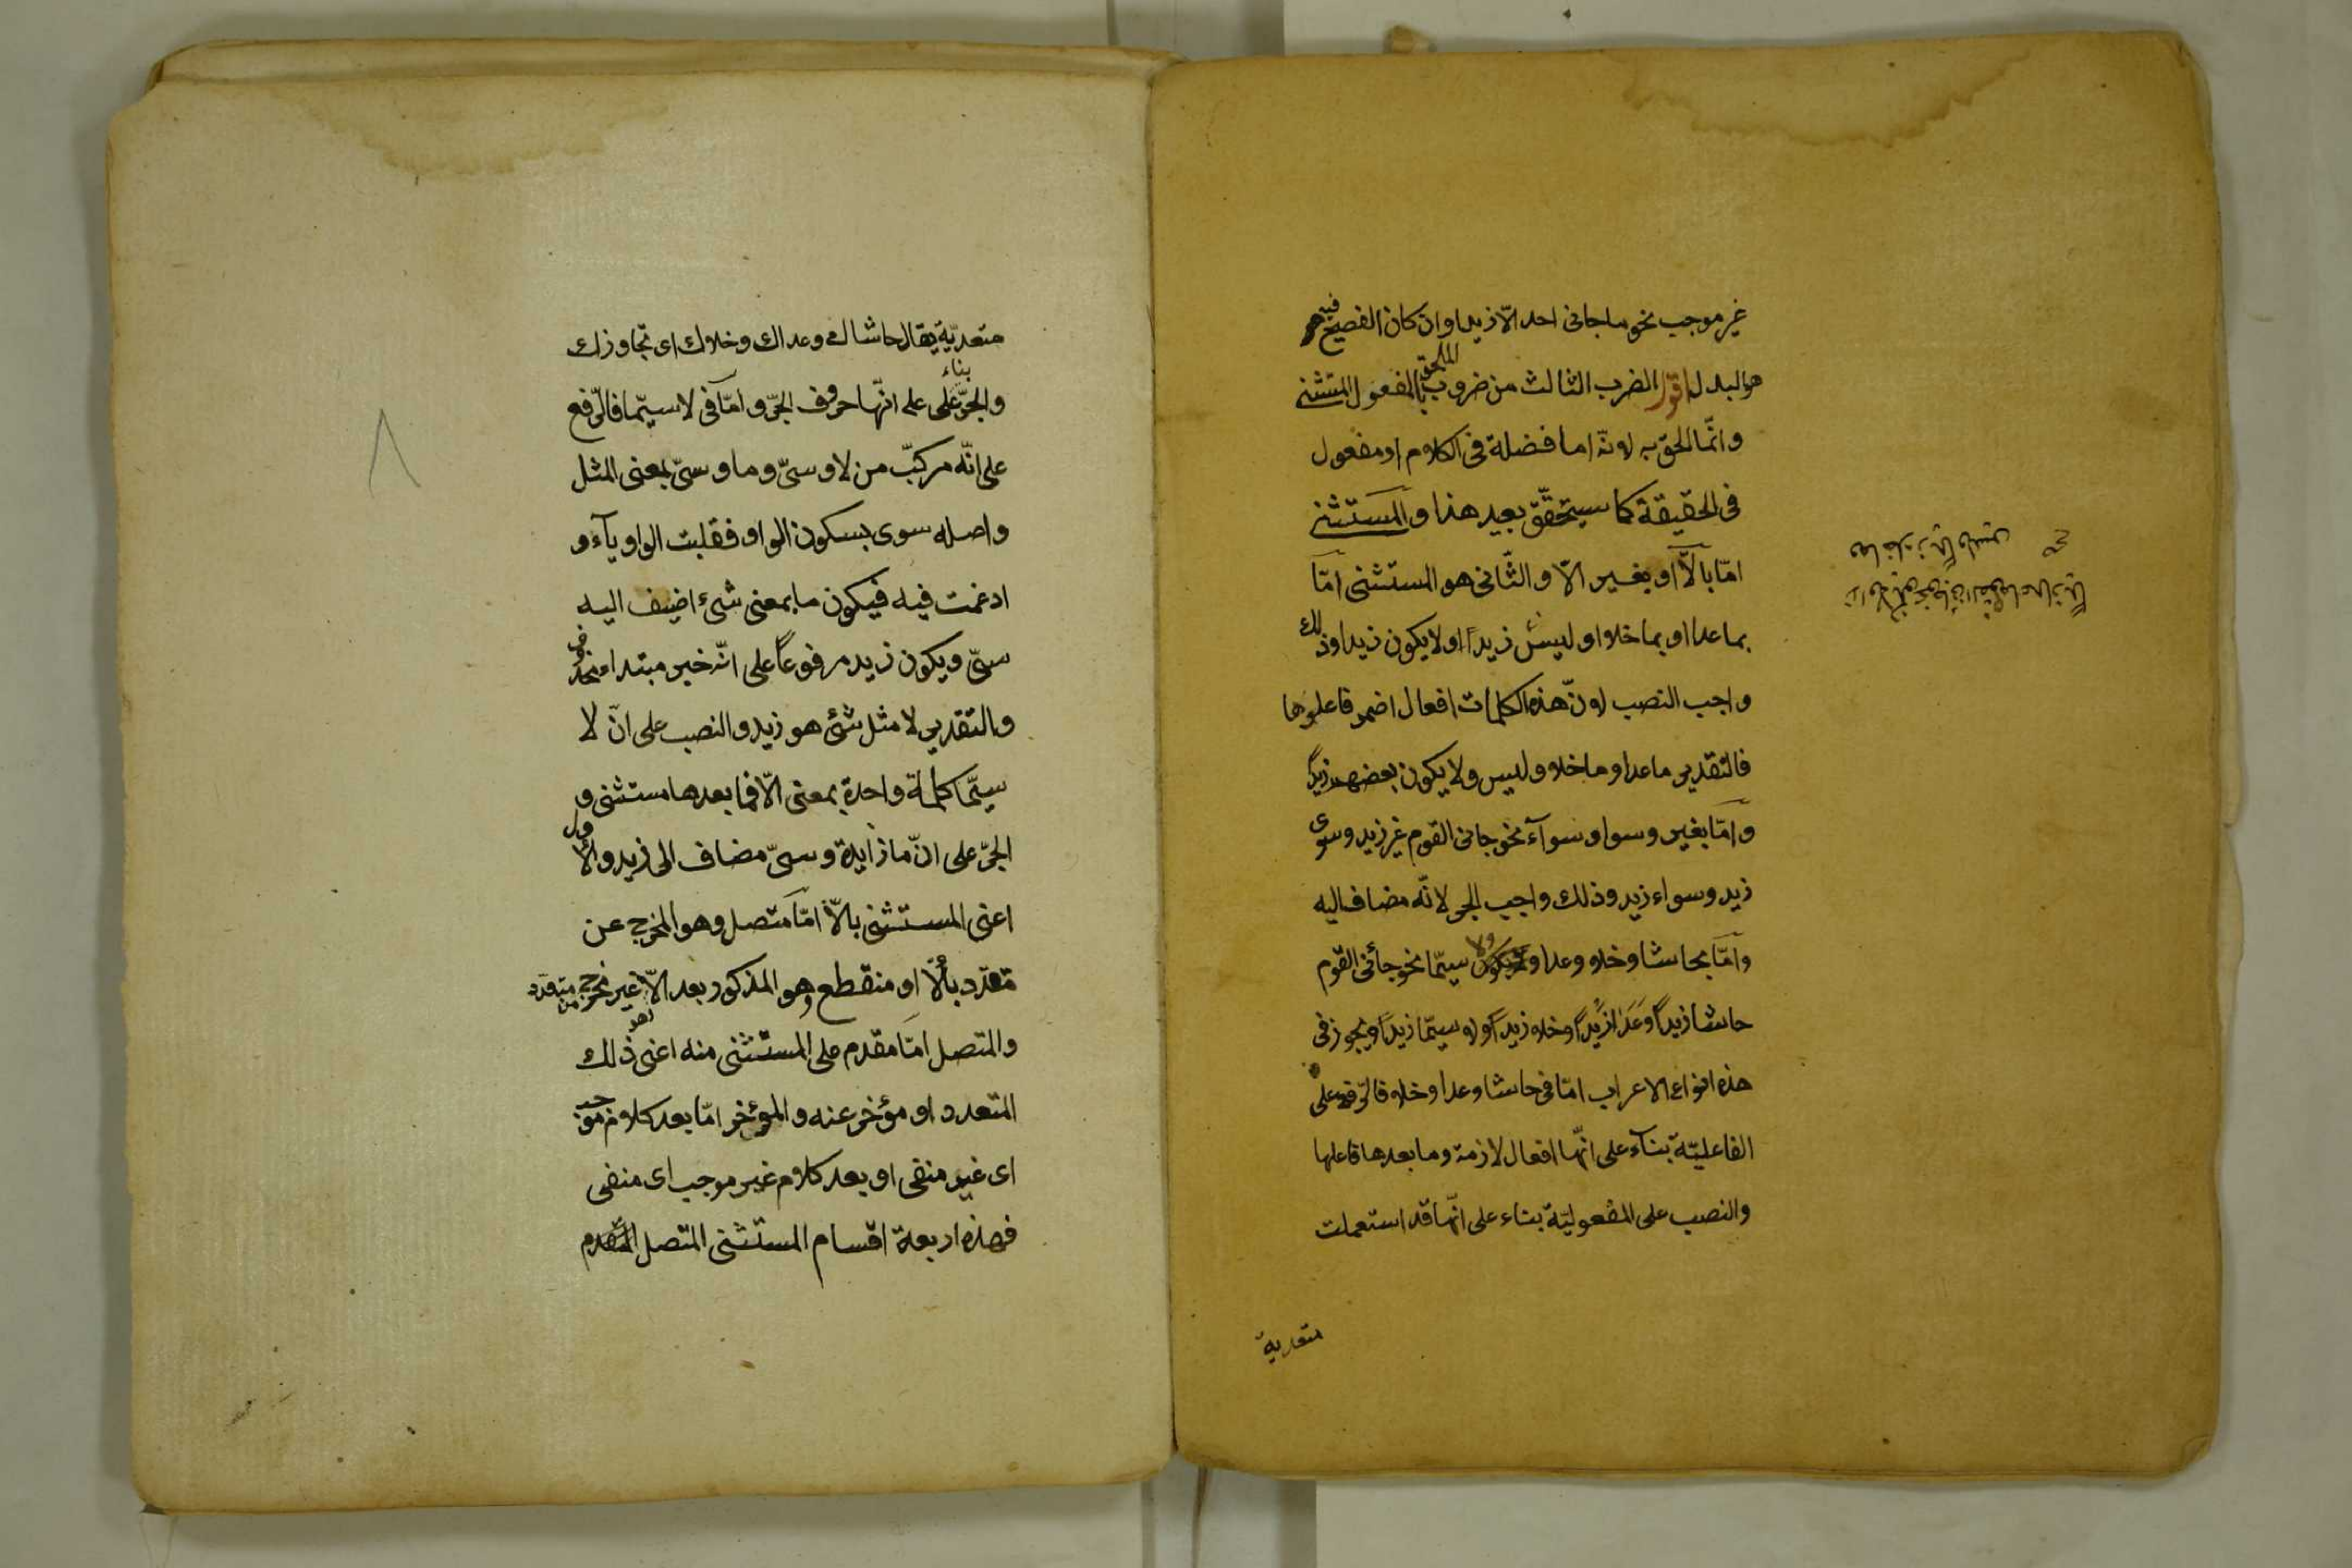 غير موجب نحو ما جانى احد الّا زيدا وان كان الفصيح فيه
هو البدل اقول الضرب الثالث من ضروب الملحق بالمفعول المستثنى
وانّما الحق به لانّه اما فضلة فى الكلام او مفعول
فى الحقيقة كما سيتحقّق بعيد هذا والمستثنى
امّا بالّا او بغير الّا والثّانى هو المستثنى امّا
بما عدا او بما خلا او ليس زيداً او لا يكون زيدا وذلك
واجب النصب لانّ هذه الكلمات افعال اضمر فاعلوها
فالتقدير ما عدا وما خلا وليس ولا يكون بعضهم زيداً
وامّا بغير وسوا وسوآء نحو جانى القوم غير زيد وسوى
زيد وسواء زيد وذلك واجب الجر لانّه مضاف اليه
وامّا بحاشا وخلا وعدا ولا سيّما نحو جائنى القوم
حاشا زيداً وعَدَا زيداً وخلا زيداً ولا سيّما زيداً ويجوز فى
هذه انواع الاعراب امّا فى حاشا وعدا وخلا فالرّفع على
الفاعليّة بنآء على انّها افعال لازمة وما بعدها فاعلها
والنصب على المفعوليّة بناء على انّها قد استعملت
متعدية
متعديّة يقال حاشاك وعداك وخلاك اى تجاوزك
والجرّ بناء على انّها حروف الجرّ وامّا فى لا سيّما فالرّفع
على انّه مركبّ من لا وسىّ وما وسىّ بمعنى المثل
واصله سوى بسكون الواو فقلبت الواو يآء و
ادغمت فيه فيكون ما بمعنى شىء اضيف اليه
سىّ ويكون زيد مرفوعاً على انّه خبر مبتداء محذوف
والتقدير لا مثل شئ هو زيد والنصب على انّ لا
سيّما كلمة واحدة بمعنى الّا فما بعدها مستثنى و
الجرّ على انّ ما زايدة وسىّ مضاف الى زيد والاول
اعنى المستثنى بالّا امّا متصل وهو المخرج عن
متعدّد بالّا او منقطع وهو المذكور بعد الّا غير مخرج من متعدد
والمتصل امّا مقدم على المستثنى منه اعنى ذلك
المتعدد او مؤخر عنه والمؤخر امّا بعد كلام موجب
اى غير منفى او بعد كلام غير موجب اى منفى
فهذه اربعة اقسام المستثنى المتصل المقدم